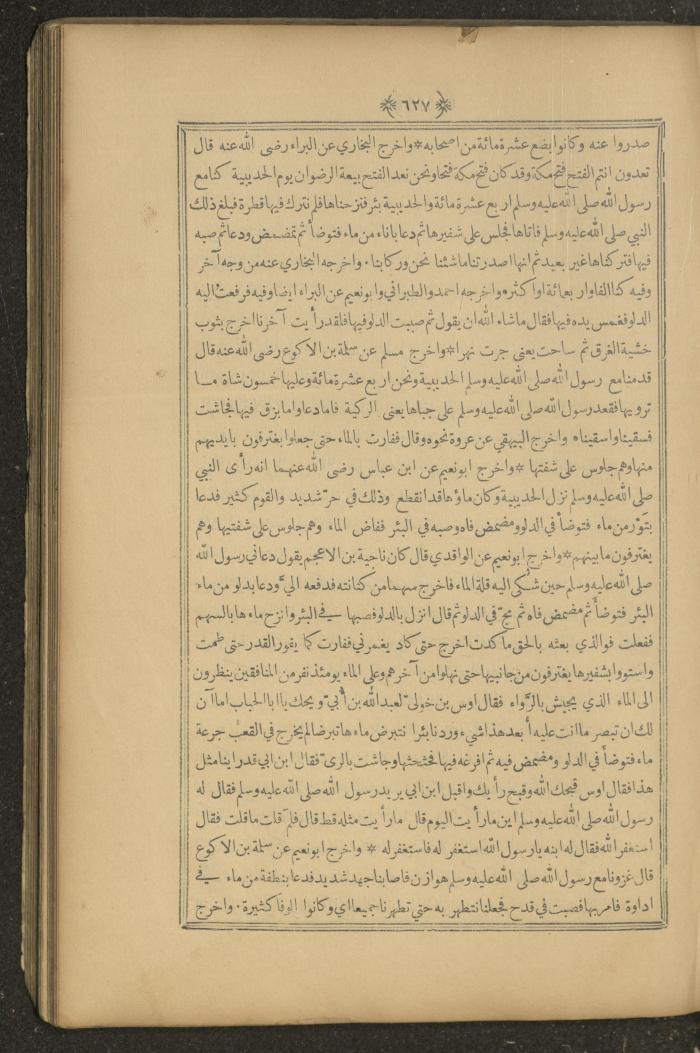 ٦٢٧
صدروا عنه وكانوا بضع عشرة مائة من اصحابه * واخرج البخاري عن البراء رضى الله عنه قال
تعدون انتم الفتح فتح مكة وقد كان فتح مكة فتحا ونحن نعد الفتح بيعة الرضوان يوم الحديبية كنا مع
رسول الله صلى الله عليه وسلم اربع عشرة مائة والحديبية بئر فنزحناها فلم نترك فيها قطرة فبلغ ذلك
النبي صلى الله عليه وسلم فاتاها فجلس على شفيرها ثم دعا باناء من ماء فتوضأ ثم تمضمض ودعا ثم صبه
فيها فتركناها غير بعيد ثم انها اصدرتنا ما شئنا نحن وركابنا . واخرجه البخاري عنه من وجه آخر
وفيه كنا الفا واربعائة او اكثر * واخرجه احمد والطبراني وابو نعيم عن البراء ايضا وفيه فرفعت اليه
الدلو فغمس يده فيها فقال ما شاء الله ان يقول ثم صببت الدلو فيها فلقد رأيت آخرنا اخرج بثوب
خشية الغرق ثم ساحت يعنى جرت نهرا * واخرج مسلم عن سلمة بن الاكوع رضى الله عنه قال
قدمنا مع رسول الله صلى الله عليه وسلم الحديبية ونحن اربع عشرة مائة وعليها خمسون شاة مــا
ترويها فقعد رسول الله صلى الله عليه وسلم على جباها يعنى الركية فاما دعا واما بزق فيها فجاشت
فسقينا واسقيناه واخرج البيهقي عن عروة نحوه وقال ففارت بالماء حتى جعلوا يغترفون بايديهم
منها وهم جلوس على شفتها * واخرج ابو نعيم عن ابن عباس رضى الله عنهما انه رأى النبي
صلى الله عليه وسلم نزل الحديبية وكان ماؤها قد انقطع وذلك في حرّ شديد والقوم كثير فدعا
بتَوْر من ماء فتوضأ في الدلو ومضمض فاه وصبه في البئر ففاض الماء وهم جلوس على شفتيها وهم
يغترفون ما بينهم * واخرج ابو نعيم عن الواقدي قال كان ناجية بن الاعجم يقول دعاني رسول الله
صلى الله عليه وسلم حين شكى اليه قلة الماء فاخرج سهما من كنانته فدفعه اليّ ودعا بدلو من ماء
البئر فتوضأ ثم مضمض فاه ثم مجّ في الدلو ثم قال انزل بالدلو فصبها في البئر وانزح ماءها بالسهم
ففعلت فوالذي بعثه بالحق ما كدت اخرج حتى كاد يغمرني ففارت كما يفور القدر حتى طمت
واستووا بشفيرها يغترفون من جانبيها حتى نهلوا من آخرهم وعلى الماء يومئذ نفر من المنافقين ينظرون
الى الماء الذي يجيش بالرَّواء فقال اوس بن خولى لعبد الله بن أُبيّ ويحك يا ابا الحباب اما آن
لك ان تبصر ما انت عليه أبعد هذا شيء وردنا بئرا نتبرض ماءها تبرضا لم يخرج في القعب جرعة
ماء فتوضأ في الدلو ومضمض فيه ثم افرغه فيها فحثحثها وجاشت بالرىّ فقال ابن ابي قد راينا مثل
هذا فقال اوس قبحك الله وقبح رأيك واقبل ابن ابي يريد رسول الله صلى الله عليه وسلم فقال له
رسول الله صلى الله عليه وسلم اين ما رأيت اليوم قال ما رأيت مثله قط قال فلم قلت ما قلت فقال
استغفر الله فقال له ابنه يا رسول الله استغفر له فاستغفر له * واخرج ابو نعيم عن سلمة بن الاكوع
قال غزونا مع رسول الله صلى الله عليه وسلم هوازن فاصابنا جهد شديد فدعا بنطفة من ماء في
اداوة فامر بها فصبت في قدح فجعلنا نتطهر به حتى تطهرنا جميعا اي وكانوا الوفا كثيرة . واخرج